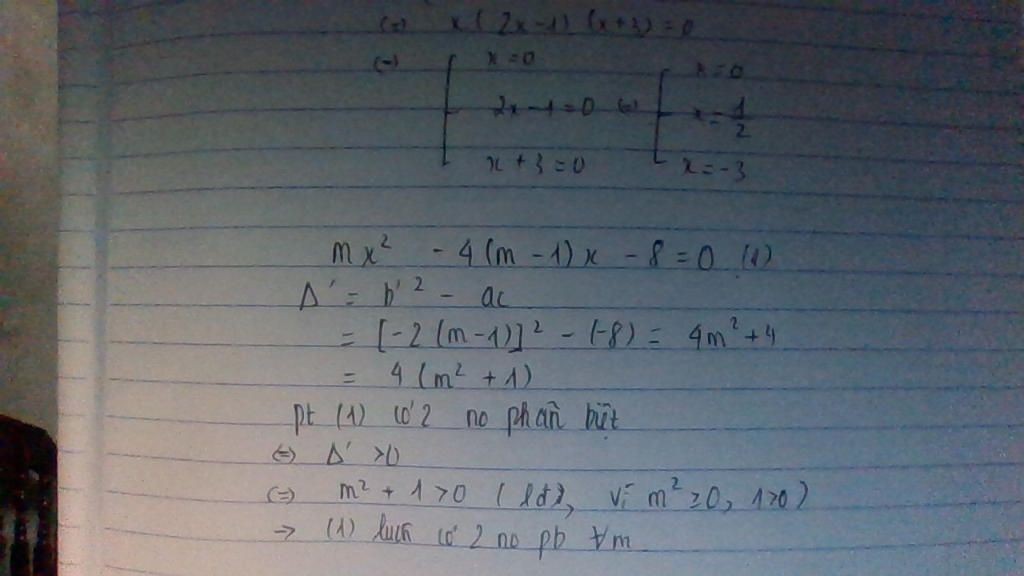 (=) x(2x-1)(x+3)=0
(=) [ x=0 [ x=0
2x-1=0 (=) x=1/2
x+3=0 x=-3
mx² - 4(m-1)x - 8 = 0 (1)
Δ' = b'² - ac
= [-2(m-1)]² - (-8) = 4m² + 4
= 4(m² + 1)
pt (1) có 2 no phân biệt
(=) Δ' > 0
(=) m² + 1 > 0 (lđ, vì m² ≥ 0, 1>0)
→ (1) luôn có 2 no pb ∀m